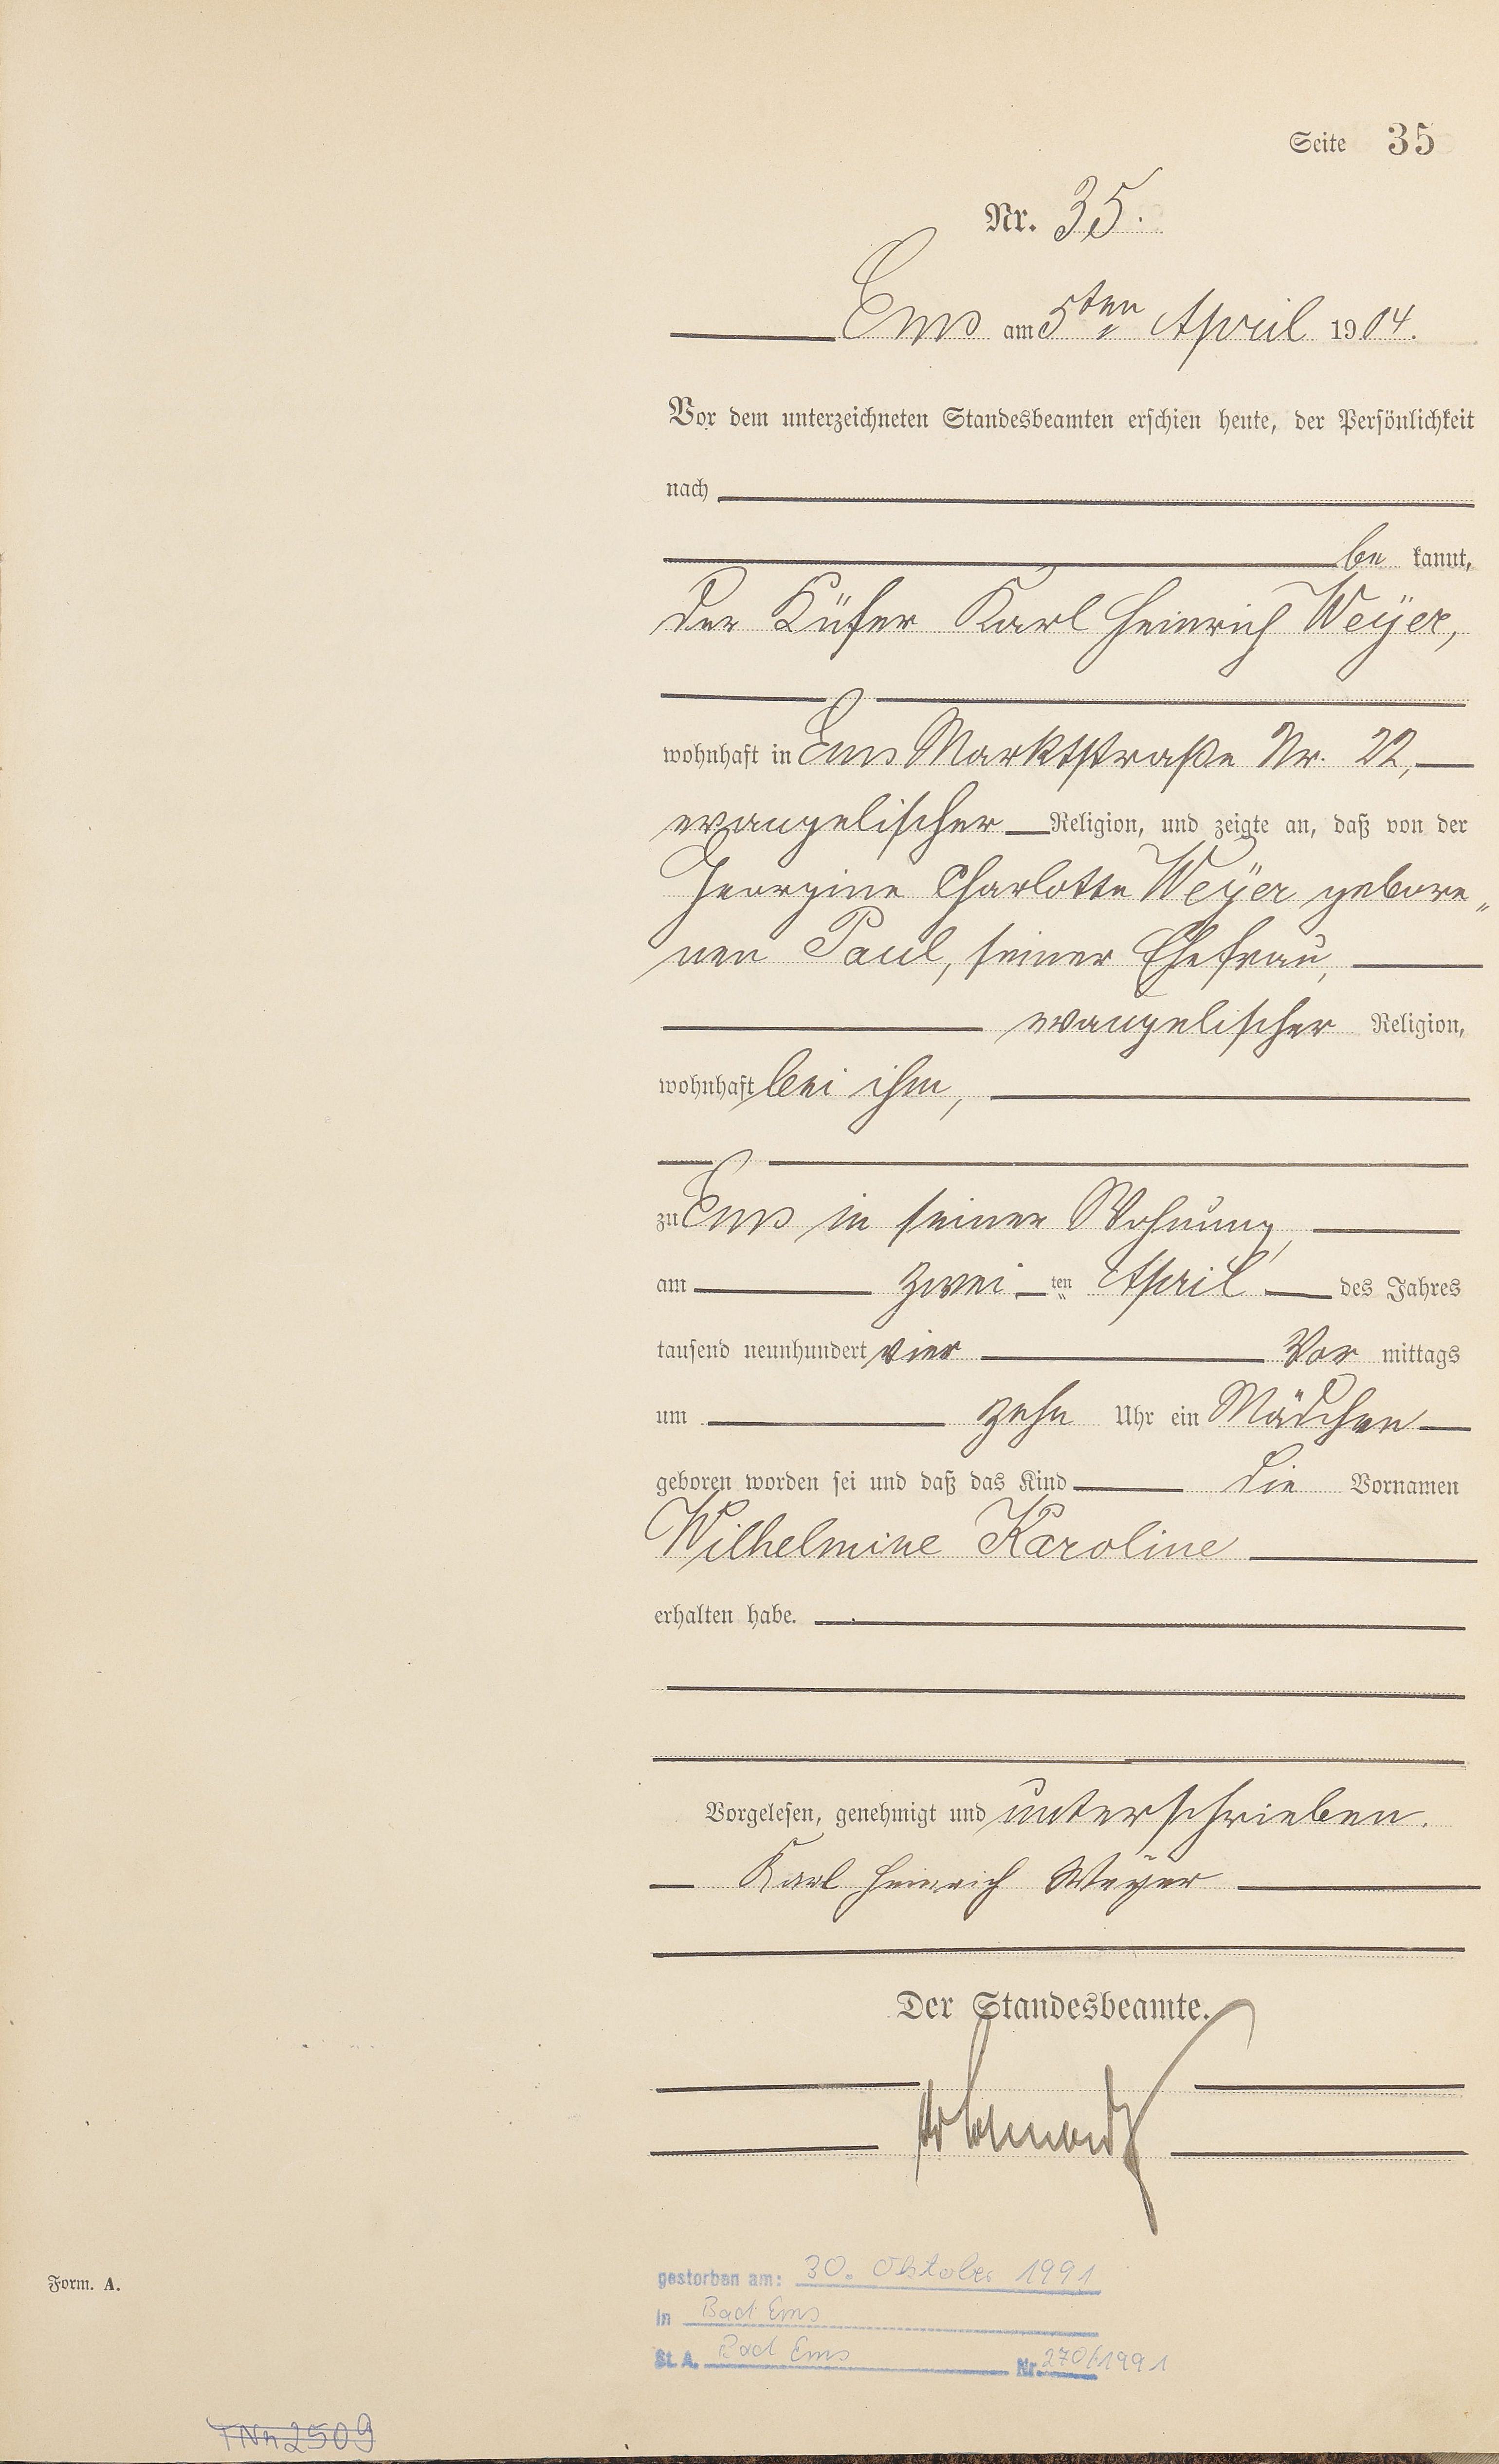 Seite 35
Nr. 35.
Ems am 5ten April 1904.
Vor dem unterzeichneten Standesbeamten erschien heute, der Persönlichkeit
nach
be kannt,
der Küfer Karl Heinrich Weÿer,
wohnhaft in Ems Marktstraße Nr. 22,
evangelischer Religion, und zeigte an, daß von der
Georgine Charlotte Weÿer gebore„
nen Paul, seiner Ehefrau,
evangelischer Religion,
wohnhaft bei ihm,
zu Ems in seiner Wohnung,
am zwei ten April des Jahres
tausend neunhundert vier Vor mittags
um zehn Uhr ein Mädchen
geboren worden sei und daß das Kind die Vornamen
Wilhelmine Karoline
erhalten habe.
Vorgelesen, genehmigt und unterschrieben.
Karl Heinrich Weÿer
Der Standesbeamte.
gestorben am: 30. Oktober 1991
Form. A.
in Bad Ems
St. A. Bad Ems Nr. 270/1991